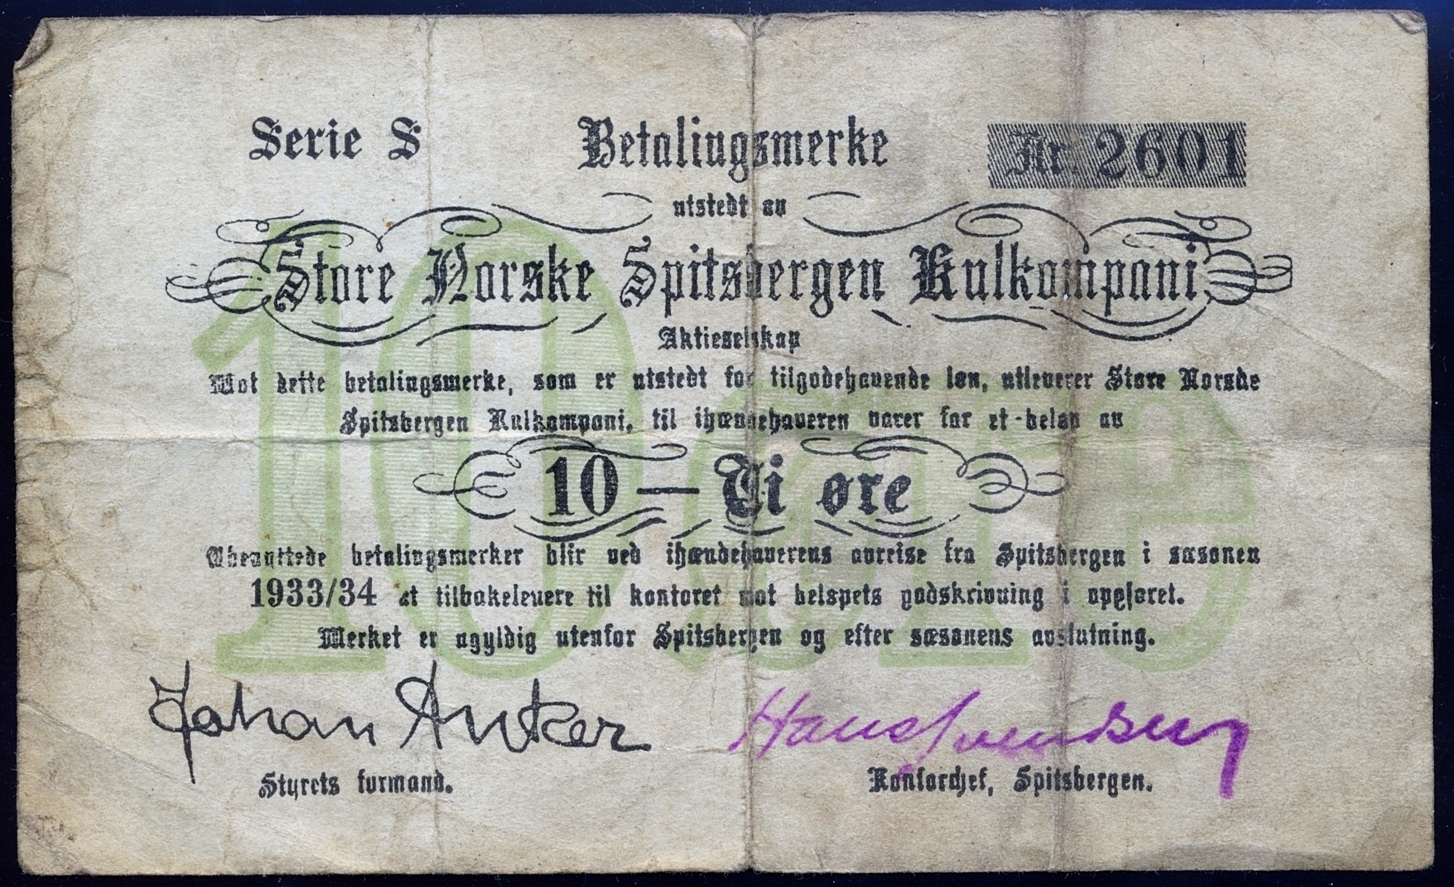 Serie S Betalingsmerke Nr. 2601
utstedt av
Store Norske Spitsbergen Kulkompani
Aktieselskap
Mot dette betalingsmerke, som er utstedt for tilgodehavende løn, utleverer Store Norske
Spitsbergen Kulkompani, til ihændehaveren varer for et beløp av
10 — Ti øre
10 øre
Ubenyttede betalingsmerker blir ved ihændehaverens avreise fra Spitsbergen i sæsonen
1933/34 at tilbakelevere til kontoret mot beløpets godskrivning i opgjøret.
Merket er ugyldig utenfor Spitsbergen og efter sæsonens avslutning.
Johan Anker Hans Svendsen
Styrets formand. Kontorchef, Spitsbergen.